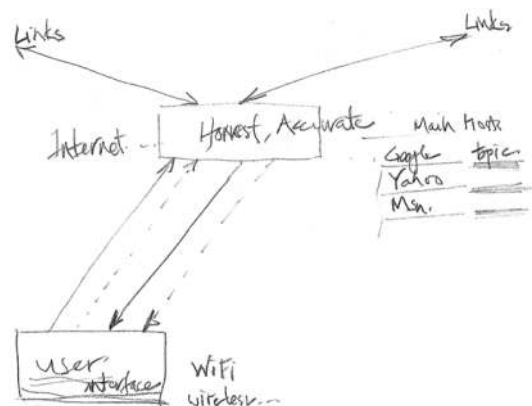 Links
Links
Internet
Honest, Accurate
Main Hosts
Google topic
Yahoo
Msn.
user
interface
WiFi
wireless...